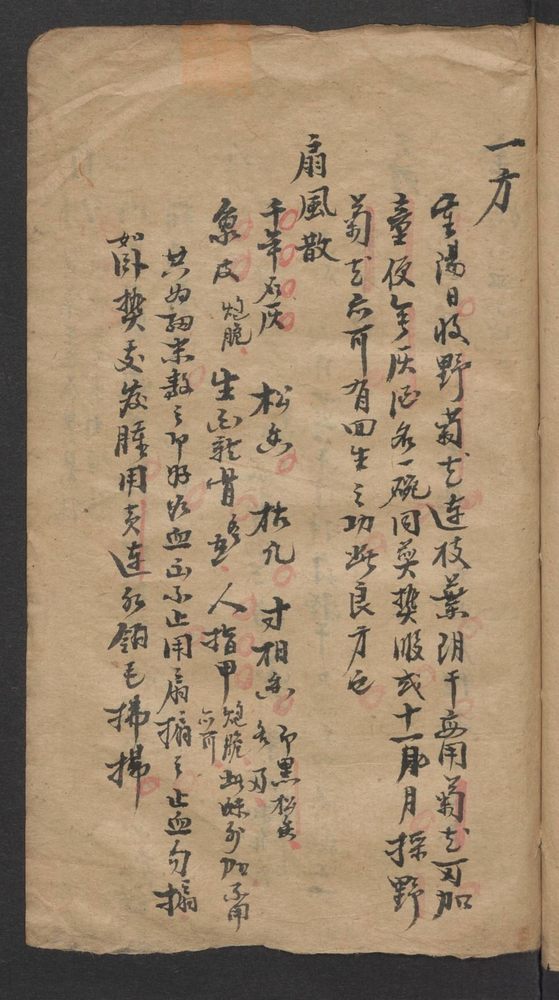 一方
重陽日收野菊花連枝葉阴干每用菊花可加
童便無灰酒各一碗同煎热服或十一月採野
菊花亦可有回生之功此良方也
扇風散
千年石灰 松香 枯凡 寸柏香 即黑松香 各
象皮炮脆 生龍骨 人指甲炮脆亦可 此味不加不用
共为細末敷之即好若血出不止用扇搧之止血勿搧
如卧热受发腫用黄連水鵝毛掃掃